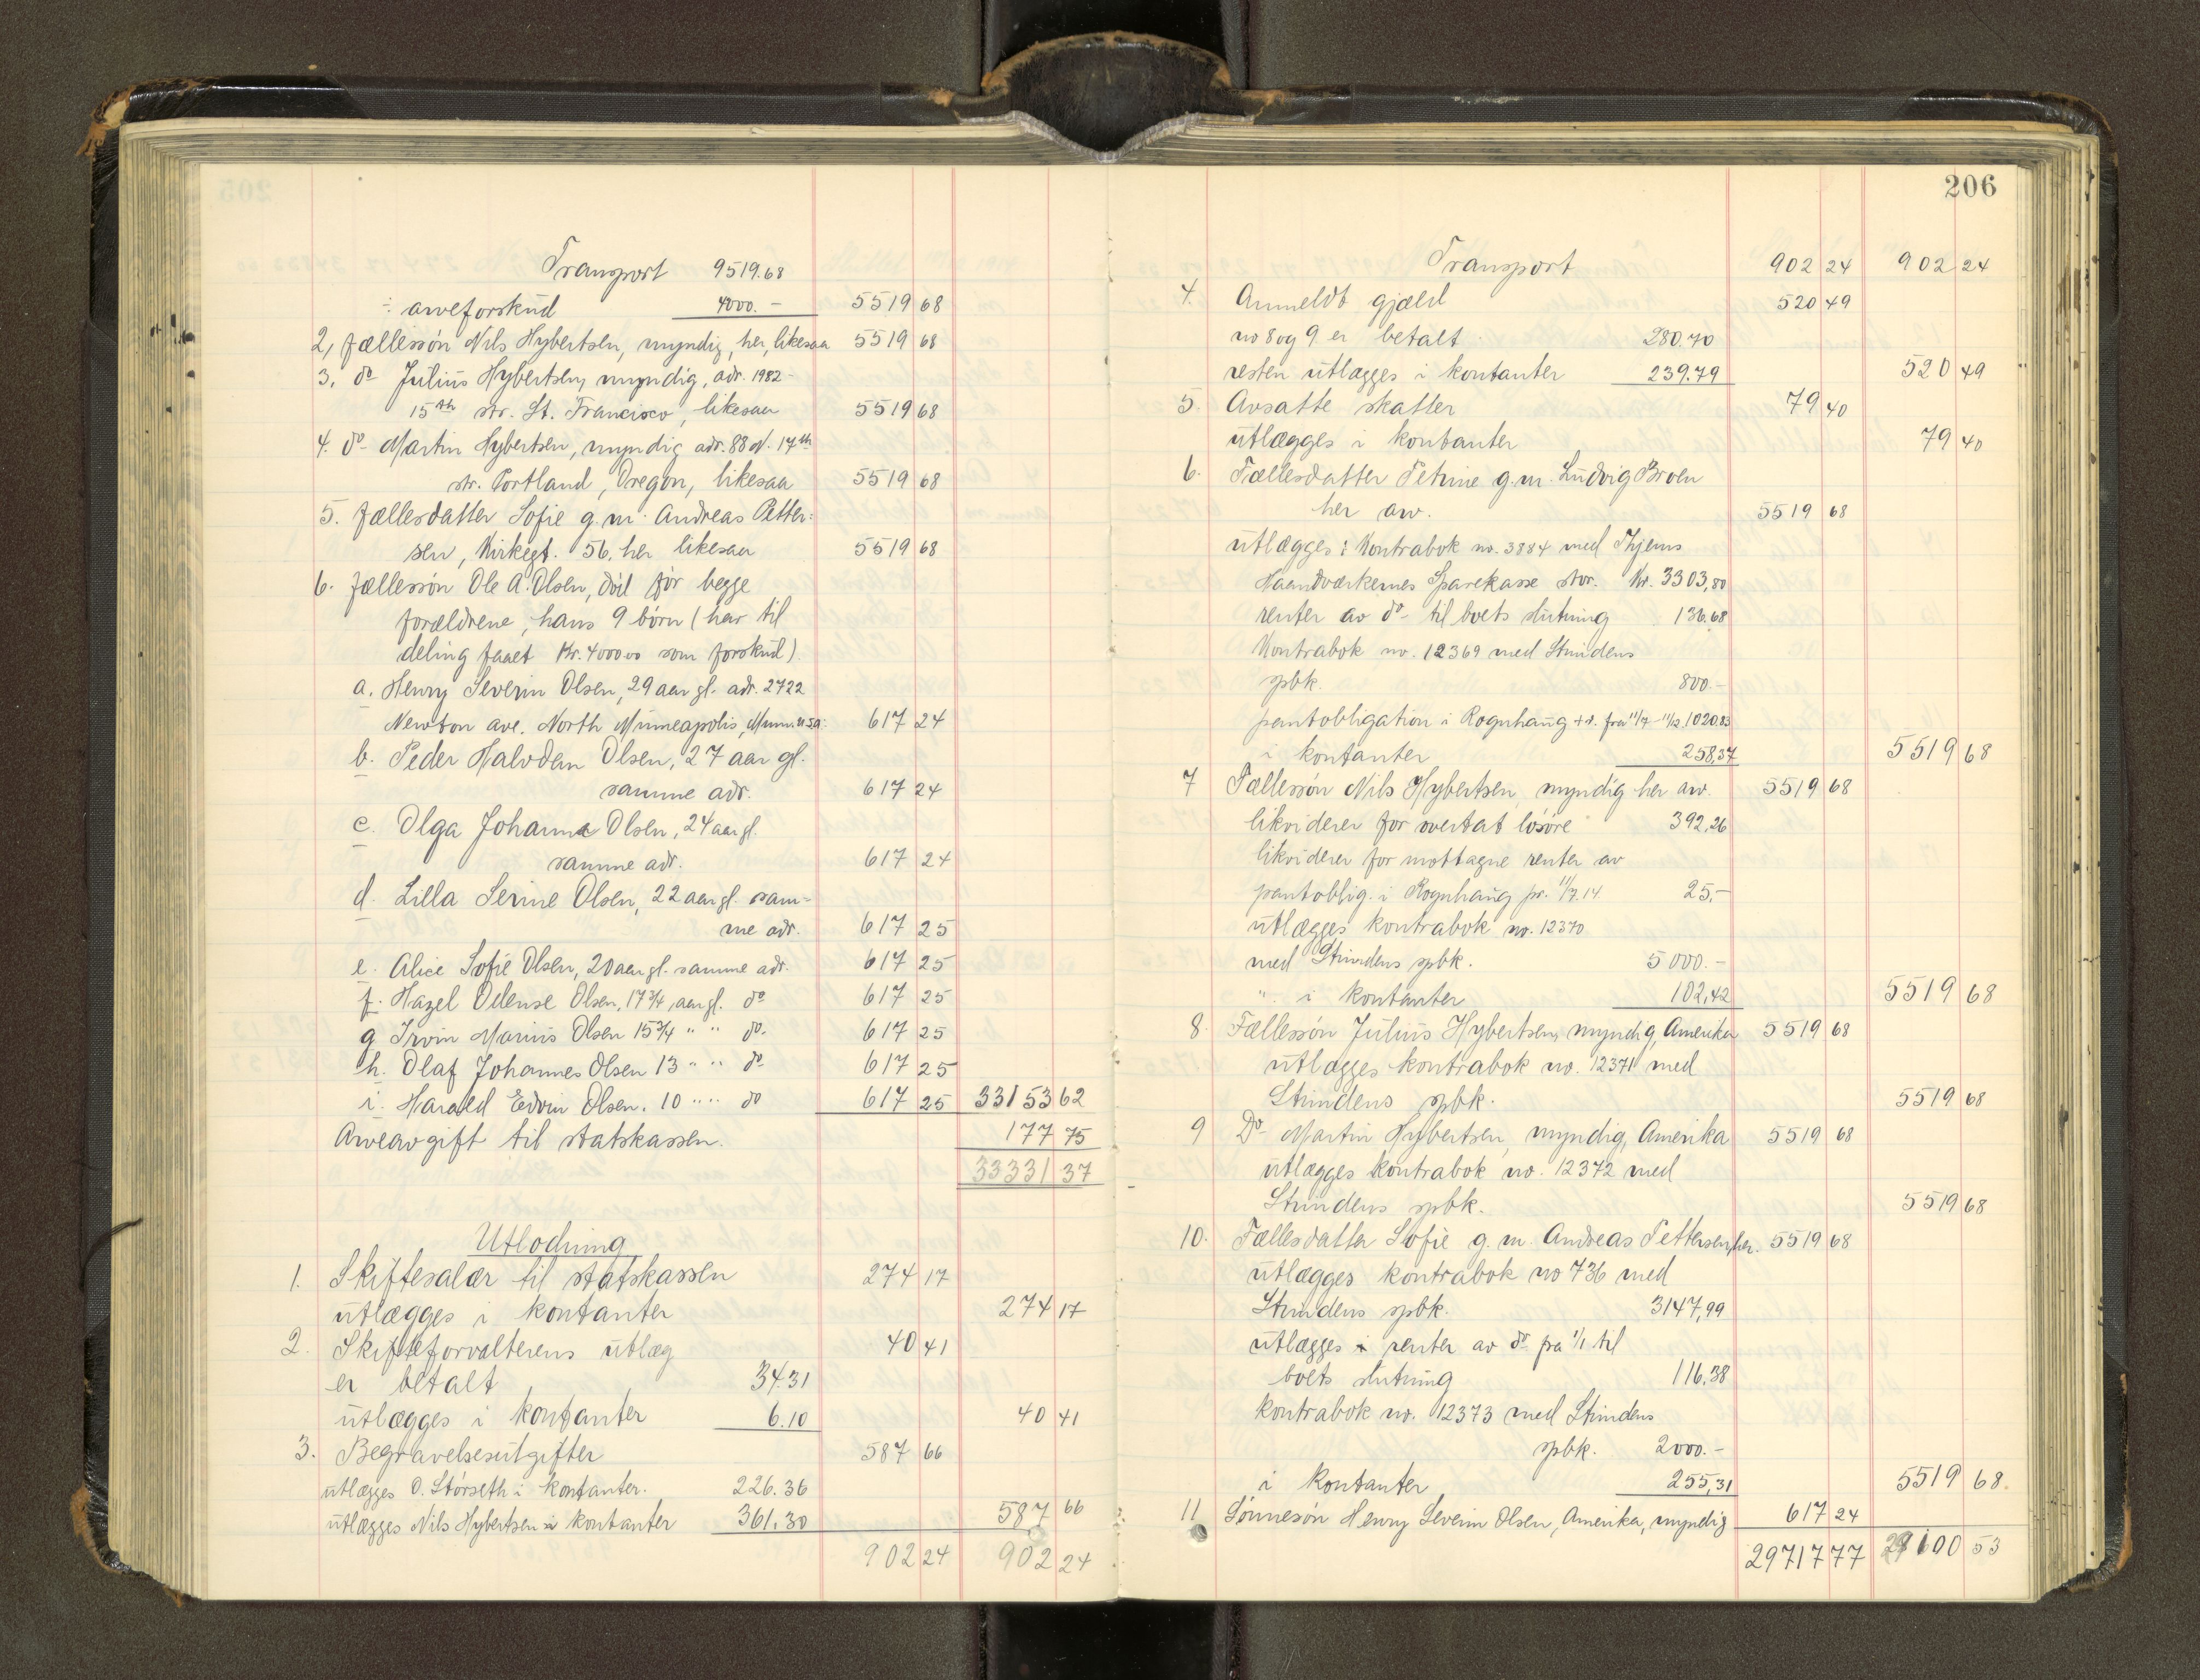 Transport 9519.68
÷ arveforskud 4000.- 5519 68
2, fællessøn Nils Hybertsen, myndig, her, likesaa 5519 68
3. do Julius Hybertsen, myndig, adr. 1982-
15th str. St. Francisco, likesaa 5519 68
4. do Martin Hybertsen, myndig adr. 88 N. 17th
str. Portland, Oregon, likesaa 5519 68
5. fællesdatter Sofie g.m. Andreas Petter=
sen, Kirkegt. 56, her likesaa 5519 68
6. fællessøn Ole A. Olsen, död før begge
forældrene, hans 9 børn (har til
deling faaet Kr. 4000 00 som forskud).
a. Henry Severin Olsen, 29 aar gl. adr. 2722
Newton ave. North Minneapolis, Minn. U.S.A. 617 24
b. Peder Halvdan Olsen, 27 aar gl.
samme adr. 617 24
c. Olga Johanna Olsen, 24 aar gl.
samme adr. 617 24
d. Lilla Serine Olsen, 22 aar gl. sam=
me adr. 617 25
e. Alice Sofie Olsen, 20 aar gl. samme adr. 617 25
f. Hazel Odense Olsen, 17 3/4 aar gl. do 617 25
g Irvin Marius Olsen 15 3/4 " " do. 617 25
h. Olaf Johannes Olsen 13 " " do 617 25
i. Harald Edvin Olsen. 10 " " do 617 25 33153 62
Arveavgift til statskassen. 177 75
33331 37
Utlodning
1. Skiftesalær til statskassen 274 17
utlægges i kontanter 274 17
2. Skifteforvalterens utlæg 40 41
er betalt 34.31
utlægges i kontanter 6.10 40 41
3. Begravelsesutgifter 587 66
utlægges O. Størseth i kontanter. 226.36
utlægges Nils Hybertsen i kontanter 361.30 587 66
902 24 902 24
206
Transport 902 24 902 24
4. Anmeldt gjæld 520 49
no 8 og 9 er betalt 280.70
resten utlægges i kontanter 239.79 520 49
5. Avsatte skatter 79 40
utlægges i kontanter 79 40
6. Fællesdatter Petrine g.m. Ludvig Broen
her arv. 5519 68
utlægges: Kontrabok no. 3884 med Thjems
Haandværkernes Sparekasse stor. Kr. 3303,80
renter av do til boets slutning 136.68
Kontrabok no. 12369 med Strindens
spbk. 800.-
pantobligation i Rognhaug + r. fra 11/7-11/12 1020.83
i kontanter 258,37 5519 68
7 Fællessøn Nils Hybertsen myndig her arv. 5519 68
likviderer for overtat løsøre 392,26
likviderer for mottagne renter av
pantoblig. i Rognhaug pr. 11/7.14 25,-
utlægges kontrabok no. 12370
med Strindens spbk. 5000.-
" i kontanter 102,42 5519 68
8. Fællessøn Julius Hybertsen, myndig, Amerika 5519 68
utlægges kontrabok no. 12371 med
Strindens spbk. 5519 68
9 Do Martin Hybertsen, myndig, Amerika 5519 68
utlægges kontrabok no. 12372 med
Strindens spbk. 5519 68
10. Fællesdatter Sofie g.m. Andreas Pettersen, her. 5519 68
utlægges kontrabok no 736 med
Strindens spbk. 3147,99
utlægges i renter av do fra 1/1 til
boets slutning 116.38
kontrabok no. 12373 med Strindens
spbk. 2000.-
i kontanter 255,31 5519 68.
11 Sønnesøn Henry Severin Olsen, Amerika, myndig 617 24
29717 77 29100 53